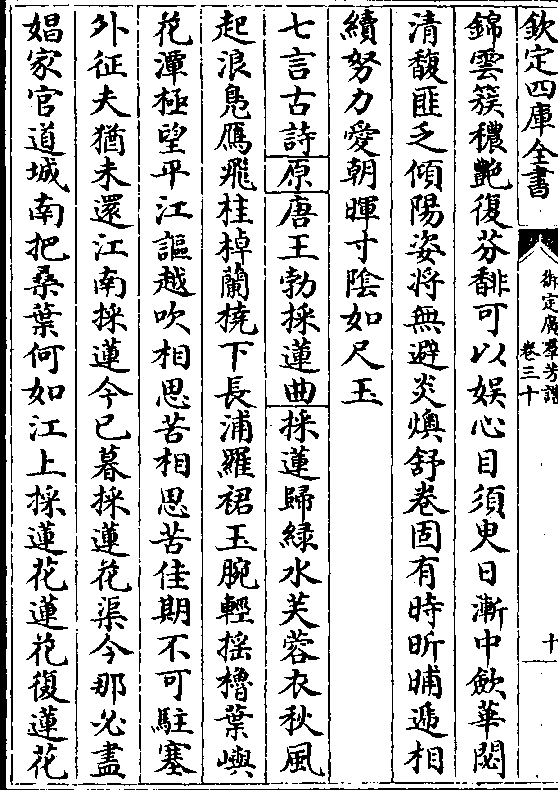 欽定四庫全書
御定廣羣芳譜
卷三十
十
錦雲簇穠艷復芬馡可以娛心目須臾日漸中斂華閟
清馥匪乏傾陽姿將無避炎燠舒卷固有時昕晡遞相
續努力愛朝暉寸陰如尺玉
七言古詩原唐王勃採蓮曲採蓮歸緑水芙蓉衣秋風
起浪鳬鴈飛桂棹蘭橈下長浦羅裙玉腕輕摇櫓葉嶼
花潭極望平江謳越吹相思苦相思苦佳期不可駐塞
外征夫猶未還江南採蓮今已暮採蓮花渠今那必盡
娼家官道城南把桑葉何如江上採蓮花蓮花復蓮花